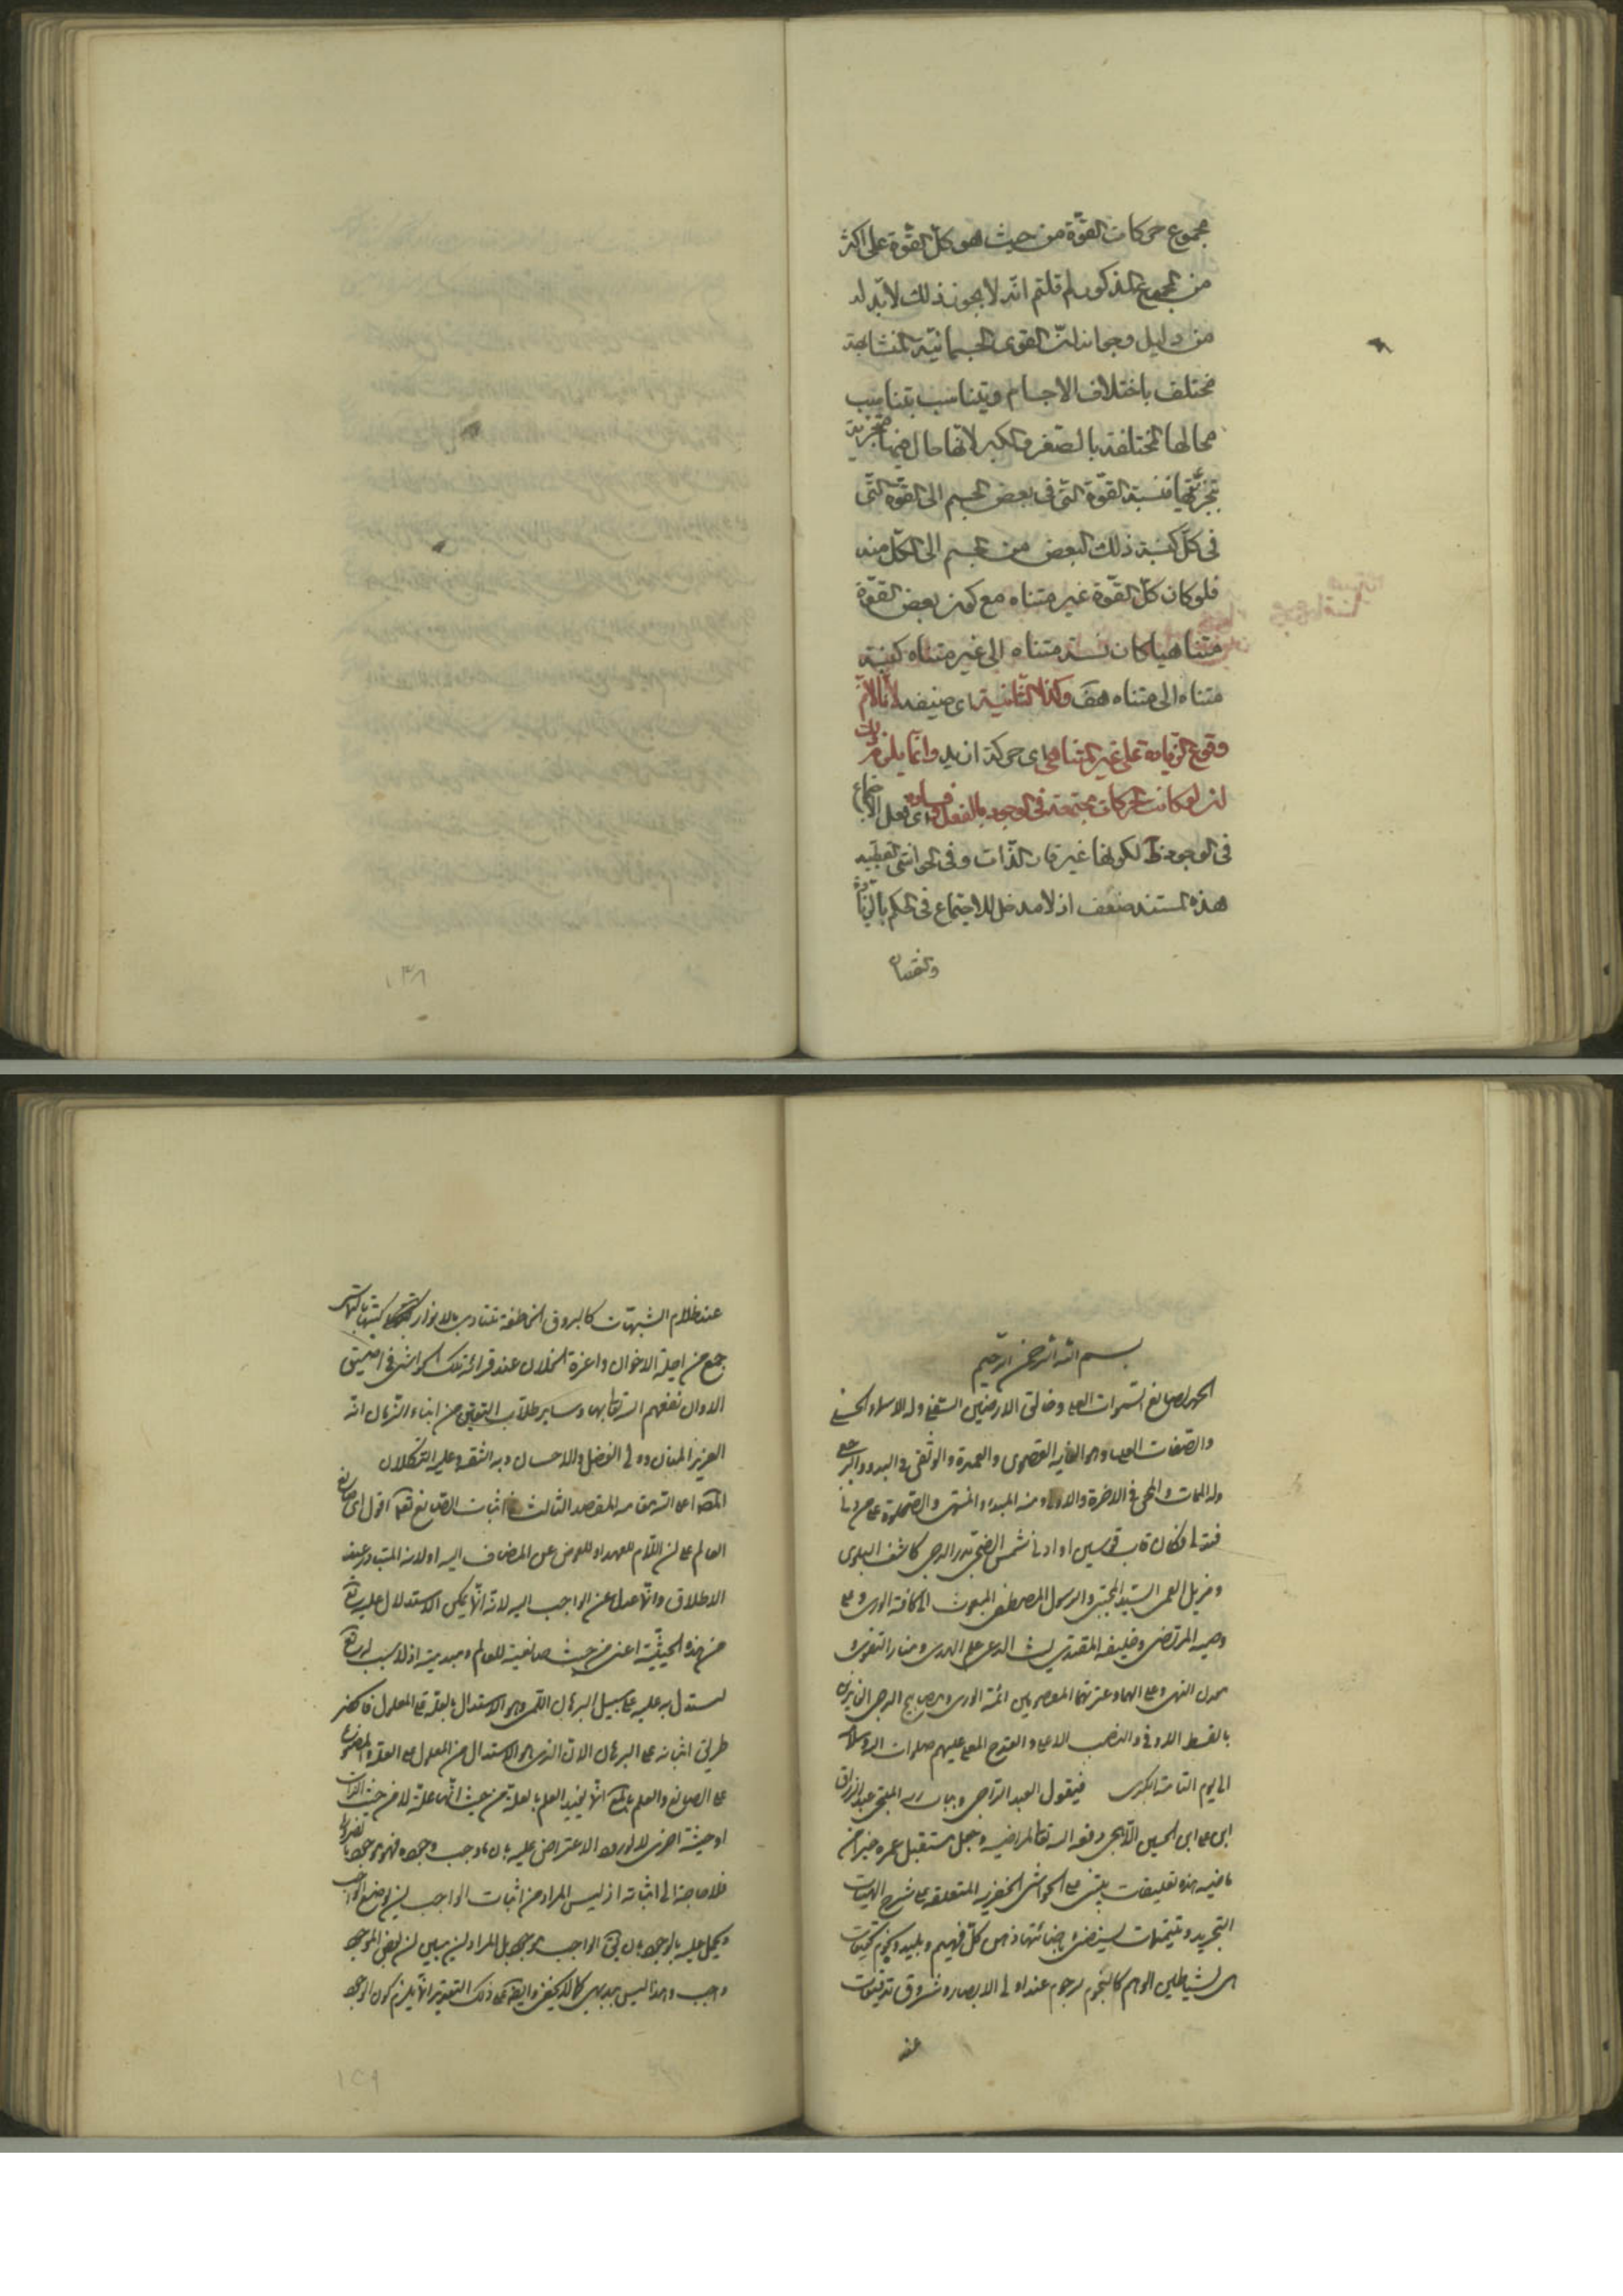 مجموع حركات القوّة من حيث هو كلّ القوّة على اكثر
من المجموع المذكور لم قلتم انّه لا يجوز ذلك لا بدّ له
من دليل وجوابه انّ القوى الجسمانيّة المتشابهة
تختلف باختلاف الاجسام ويتناسب بتناسب
محالها المختلفة بالصغر والكبر لانّها حال فيها متجزية
بتجزّيها فنسبة القوّة الّتى فى بعض الجسم الى القوّة الّتى
فى كلّ كنسبة ذلك البعض من الجسم الى الكلّ منه
فلو كان كلّ القوّة غير متناه مع كون بعض القوّة
متناهيا كان نسبة متناه الى غير متناه كنسبة
متناه الى متناه هف وكذا الثّانية اى ضعيفة لانّا لانم
وقوع الزّيادة على غير المتناهى اى حركة ازيد وانّما يلزم ذلك
ان لو كانت الحركات مجتمعة فى الوجود بالفعل
فى الوجود لكونها غير قار الذّات وفى الحواشى القطبيه
هذه المستند ضعف اذ لا مدخل للاجتماع فى الحكم بالزيادة
والنقصان
١٣٨
بسم الله الرحمن الرّحيم
الحمد لصانع السّموات العلى وخالق الارضين السفلى وله الاسماء الحسنى
والصّفات العليا وهو الغاية القصوى والعمدة والوثقى فى البدو والرجعى
وله الممات والمحيى فى الاخرة والاولى ومنه المبدء والمنتهى والصّلوة على من دنا
فتدلى فكان قاب قوسين او ادنا شمس الضحى بدر الدجى كاشف البلوى
ومزيل العمى السيّد المجتبى والرسول المصطفى المبعوث الى كافة الورى وعلى
وصيه المرتضى وخليفه المقتدى ليث الدعى علم الهدى ومنار التقوى و
معدن النهى وعلى الهما وعترتهما المعصومين ائمّة الورى ومصابيح الدجى الفايزين
بالقسط الاوفى والنصب الاعلى والقدح المعلى عليهم صلوات الله وسلامه
الى يوم الطّامّة الكبرى فيقول العبد الرّاجى وبباب ربه الملتجى عبد الرزاق
ابن على ابن الحسين اللّاهجى وفقه الله تعالى لمراضيه وجعل مستقبل عمره خيرا من
ماضيه هذه تعليقات بيّنتى على الحواشى الخفرية المتعلقة على شرح الهيات
التجريد وتتيمات يستضئ باضائتها ذهن كلّ فهيم وبليد ونجوم تحقيقات
هى لشياطين الوهم كالنّجوم رجوم عند اولى الابصار وشروق تدقيقات
عند
عند ظلام الشبهات كالبروق الخاطفة تتنادى بالانوار
جمع من اجلة الاخوان واعزة الخلان عند قرائة تلك الحواشى فى
الاوان نفعهم الله تعالى بها وساير طلّاب اليقين من ابناء الزّمان انّه
العزيز المنان وولى الفضل والاحسان وبه الثقة وعليه التّكلان
المقصد الثالث فى اثبات الصّانع تعالى اقول اى صانع
العالم على ان اللّام للعهد او للعوض عن المضاف اليه اولانه المتبادر عند
الاطلاق وانّما عدل عن الواجب اليه لانّه انّما يمكن الاستدلال عليه تعالى
من هذه الحيثيّة اعنى من حيث صانعية للعالم ومبديته اذ لا سبب له تعالى
ليستدل به عليه على سبيل البرهان اللّمى وهو الاستدلال بالعلّة على المعلول فانحصر
طريق اثباته على البرهان الانّى الذى هو الاستدلال من المعلول على العلّة المصنوع
على الصانع والعلم بالمعلول انّما يفيد العلم بالعلّة من حيث انّها علّة لا من حيث الذات
او حيثيّة اخرى لا لورود الاعتراض عليه بان ما وجب وجوده فهو موجود بالضرورة
فلا حاجة الى اثباته اذ ليس المراد من اثبات الواجب ان يوضع الواجب
ويحمل عليه بالوجود بان يق الواجب موجود بل المراد ان يبين ان بعض الموجود
واجب وهذا ليس بديهى كما لا يخفى وايضا على ذلك التقدير انّما يلزم كون الوجود
١٣٩